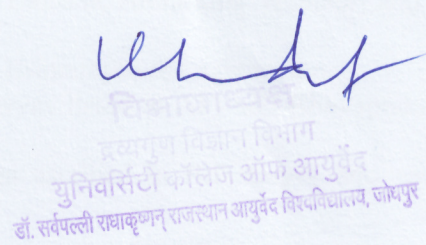 विभागाध्यक्ष
द्रव्यगुण विज्ञान विभाग
युनिवर्सिटी कॉलेज ऑफ आयुर्वेद
डॉ. सर्वपल्ली राधाकृष्णन् राजस्थान आयुर्वेद विश्वविद्यालय, जोधपुर